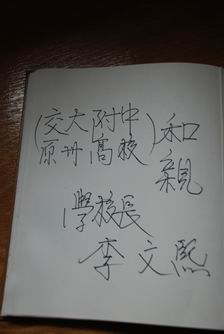 (交大附中
原州高校)
和親
學校長
李文熙